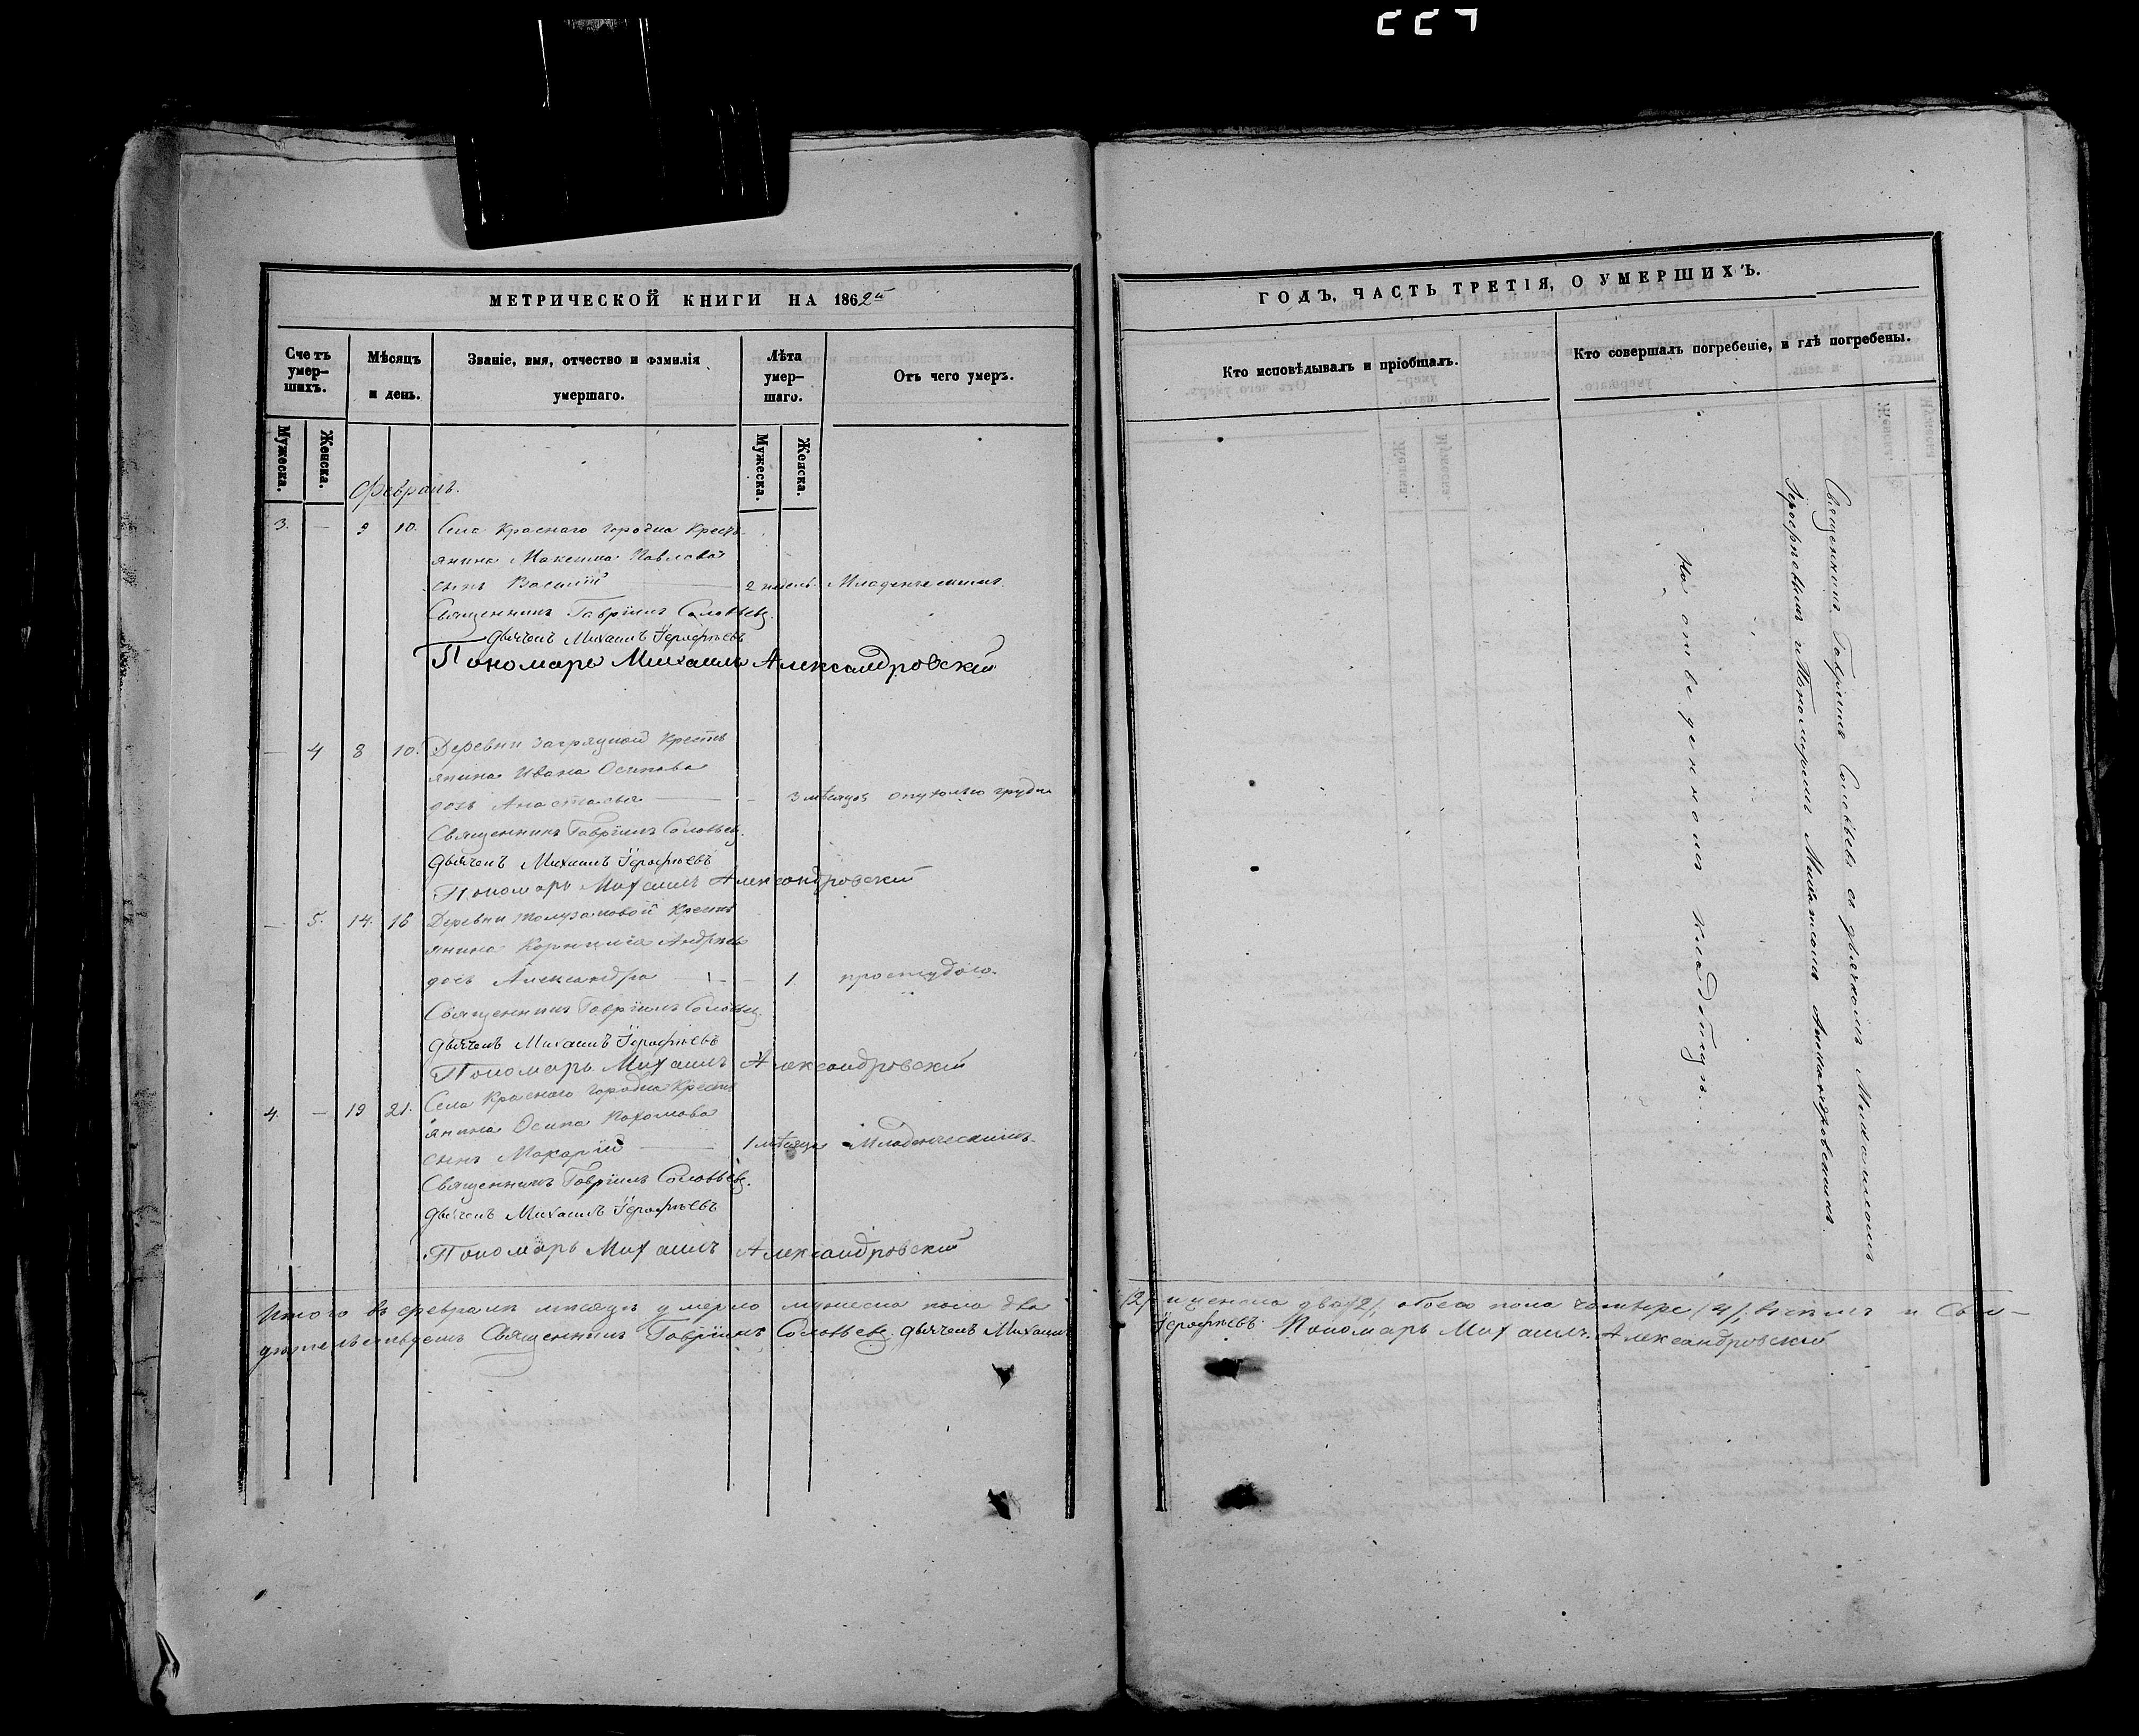 МЕТРИЧЕСКОЙ КНИГИ НА 1862й
Счетъ умер-
шихъ.
Мѣсяцъ
и день.
Званіе, имя, отчество и фамилія
умершаго.
Лѣта
умер-
шаго.
Отъ чего умеръ.
Мужеска.
Женска.
Мужеска.
Женска.
Февраль.
3. — 9 10. Села Краснаго Городка Кресть-
янина Максима Павлова
сынъ Василій — 2 недель. Младенческимъ.
Священникъ Гавріилъ Соловьевъ.
Дьячекъ Михаилъ Іерофѣевъ
Пономарь Михаилъ Александровскій
— 4 8 10. Деревни Загрядной Кресть
янина Ивана Осипова
дочь Анастасья — — 3 мѣсяцъ опухолью груди
Священникъ Гавріилъ Соловьевъ.
Дьячекъ Михаилъ Іерофѣевъ
Пономарь Михаилъ Александровскій
— 5. 14. 16 Деревни Кресть
янина Корнилія Андрѣева
дочь Александра — — 1 простудою.
Священникъ Гавріилъ Соловьевъ.
Дьячекъ Михаилъ Іерофѣевъ
Пономарь Михаилъ Александровскій
4. — 19 21. Села Краснаго Городка Кресть
янина Осипа Пахомова
сынъ Макарій — 1 мѣсяца Младенческимъ.
Священникъ Гавріилъ Соловьевъ.
Дьячекъ Михаилъ Іерофѣевъ
Пономарь Михаилъ Александровскій
Итого въ феврале мѣсяцѣ умерло мужеска пола два
дѣтельствуемъ Священникъ Гавріилъ Соловьевъ. Дьячекъ Михаилъ
ГОДЪ, ЧАСТЬ ТРЕТІЯ, О УМЕРШИХЪ.
Кто исповѣдывалъ и пріобщалъ.
Кто совершалъ погребеніе, и гдѣ погребены.
Священникъ Гавріилъ Соловьевъ съ дьячкомъ Михаиломъ
Іерофѣевымъ и Пономаремъ Михаиломъ Александровскимъ
На отведенномъ кладбищѣ.
/2/ и женска два /2/, обоего пола четыре /4/, въ чемъ и Сви-
Іерофѣевъ. Пономарь Михаилъ Александровскій